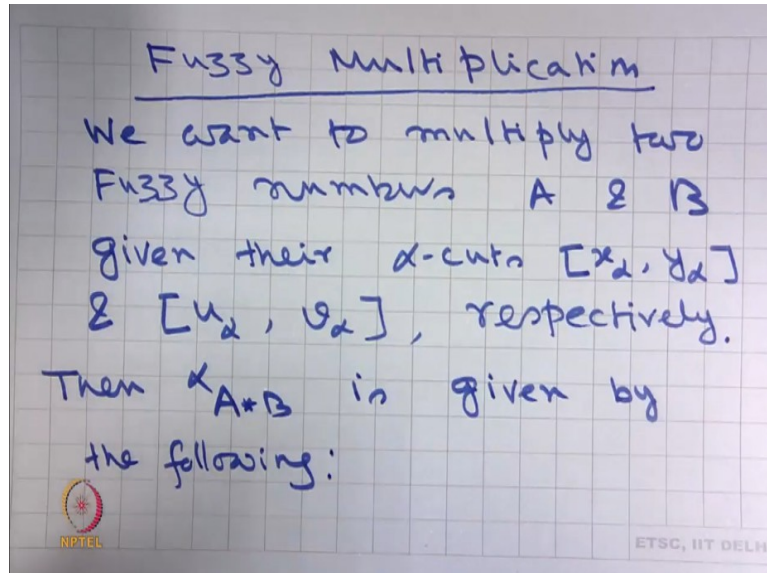 Fuzzy Multiplication
We want to multiply two
Fuzzy numbers A & B
given their α-cuts [xα, yα]
& [uα, vα], respectively.
Then αA*B is given by
the following:
NPTEL
ETSC, IIT DELH